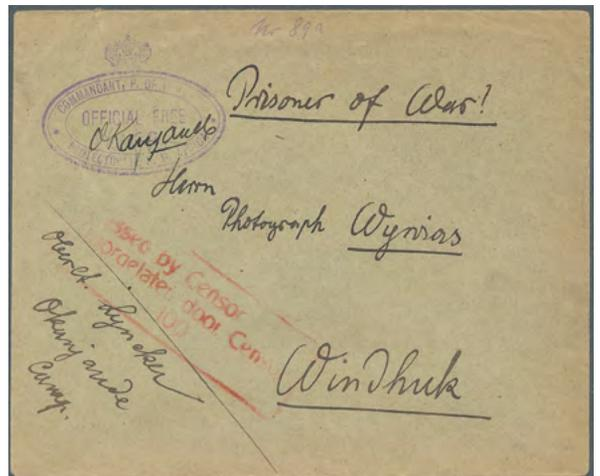 Nr 89a
COMMANDANT, P. OF
OFFICIAL FREE
Okanjande
Prisoner of War!
Herrn
Photograph Wynias
Windhuk
Passed by Censor
Voorgelaten door Censor
100
Oberlt. Lyncker
Okanjande
Camp.